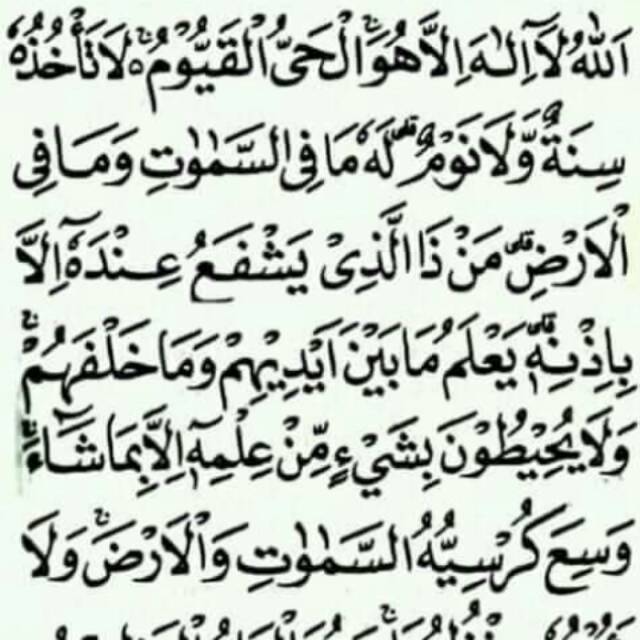 اَللّٰهُ لَآ اِلٰهَ اِلَّا هُوَ ۚ اَلْحَىُّ الْقَيُّوْمُ ۚ لَا تَاْخُذُهٗ
سِنَةٌ وَّلَا نَوْمٌ ؕ لَهٗ مَا فِى السَّمٰوٰتِ وَمَا فِى
الْاَرْضِ ؕ مَنْ ذَا الَّذِىْ يَشْفَعُ عِنْدَهٗٓ اِلَّا
بِاِذْنِهٖ ؕ يَعْلَمُ مَا بَيْنَ اَيْدِيْهِمْ وَمَا خَلْفَهُمْ ۚ
وَلَا يُحِيْطُوْنَ بِشَىْءٍ مِّنْ عِلْمِهٖٓ اِلَّا بِمَا شَآءَ ۚ
وَسِعَ كُرْسِيُّهُ السَّمٰوٰتِ وَالْاَرْضَ ۚ وَلَا